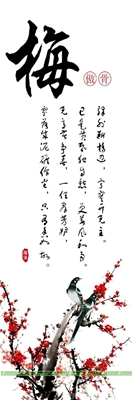 梅
傲骨
驿外断桥边，寂寞开无主。
已是黄昏独自愁，更著风和雨。
无意苦争春，一任群芳妒。
零落成泥碾作尘，只有香如故。